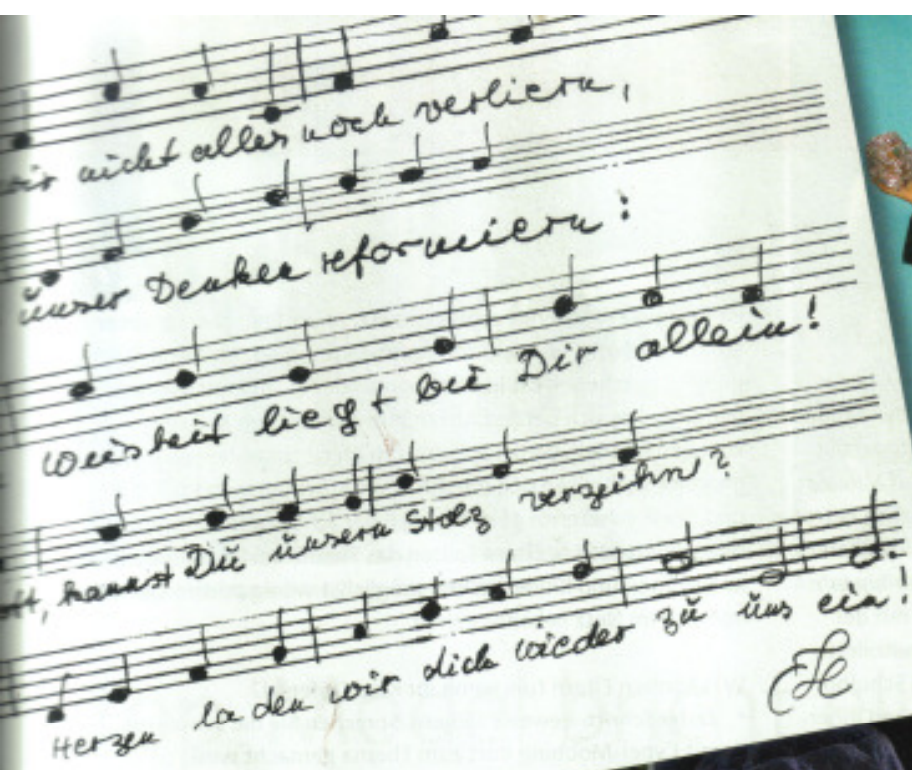 wir nicht alles noch verliern,
ünser Denken reformiern!
Weisheit liegt bei Dir allein!
ott, kannst Dü ünsern Stolz verzeihn?
Herzen laden wir dich wieder zü üns ein!